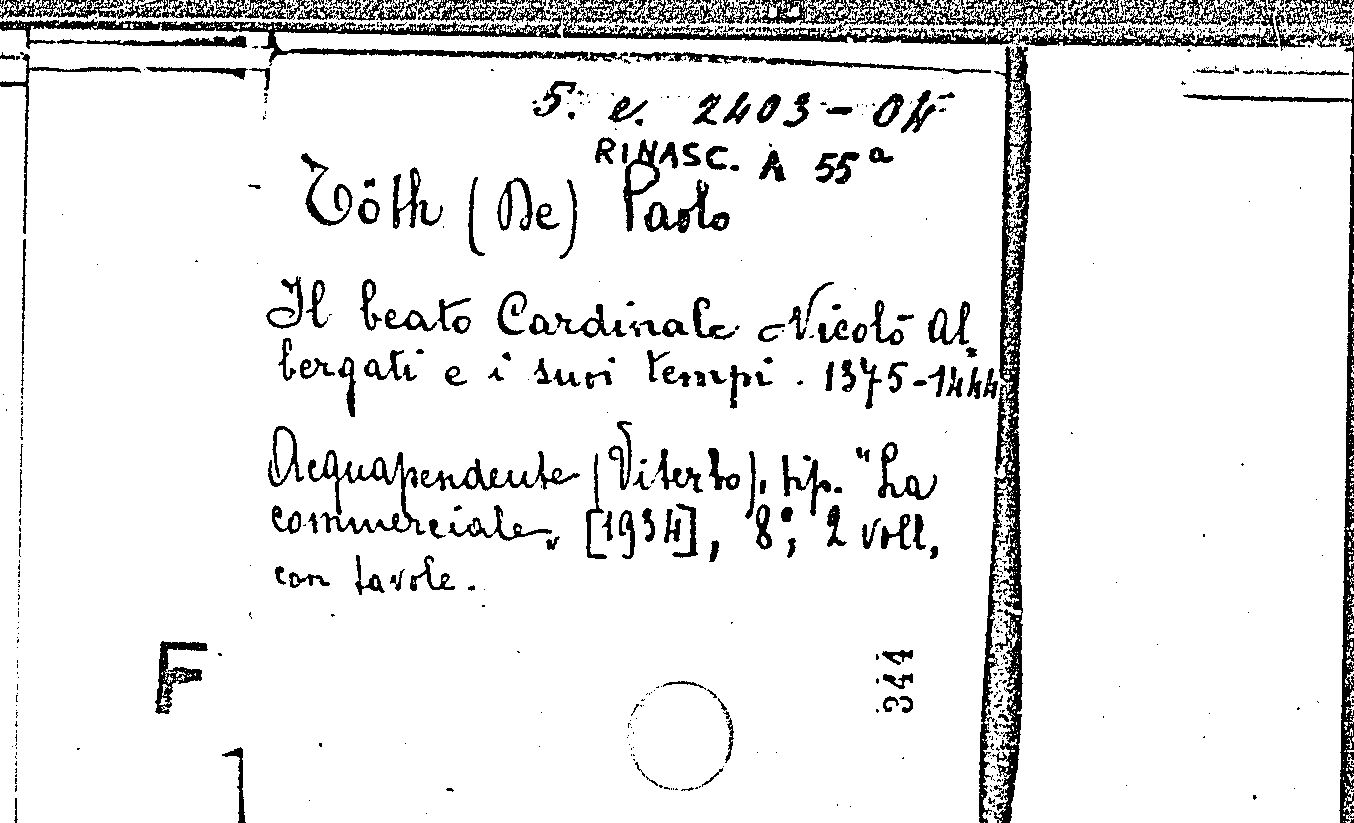 5. e. 2403-04
RINASC. A 55ª
Töth (De) Paolo
Il beato Cardinale Nicolò Al.
bergati e i suoi tempi. 1375-1444
Acquapendente (Viterbo), tip. "La
commerciale„ [1934], 8°, 2 voll.
con tavole.
344
F
1